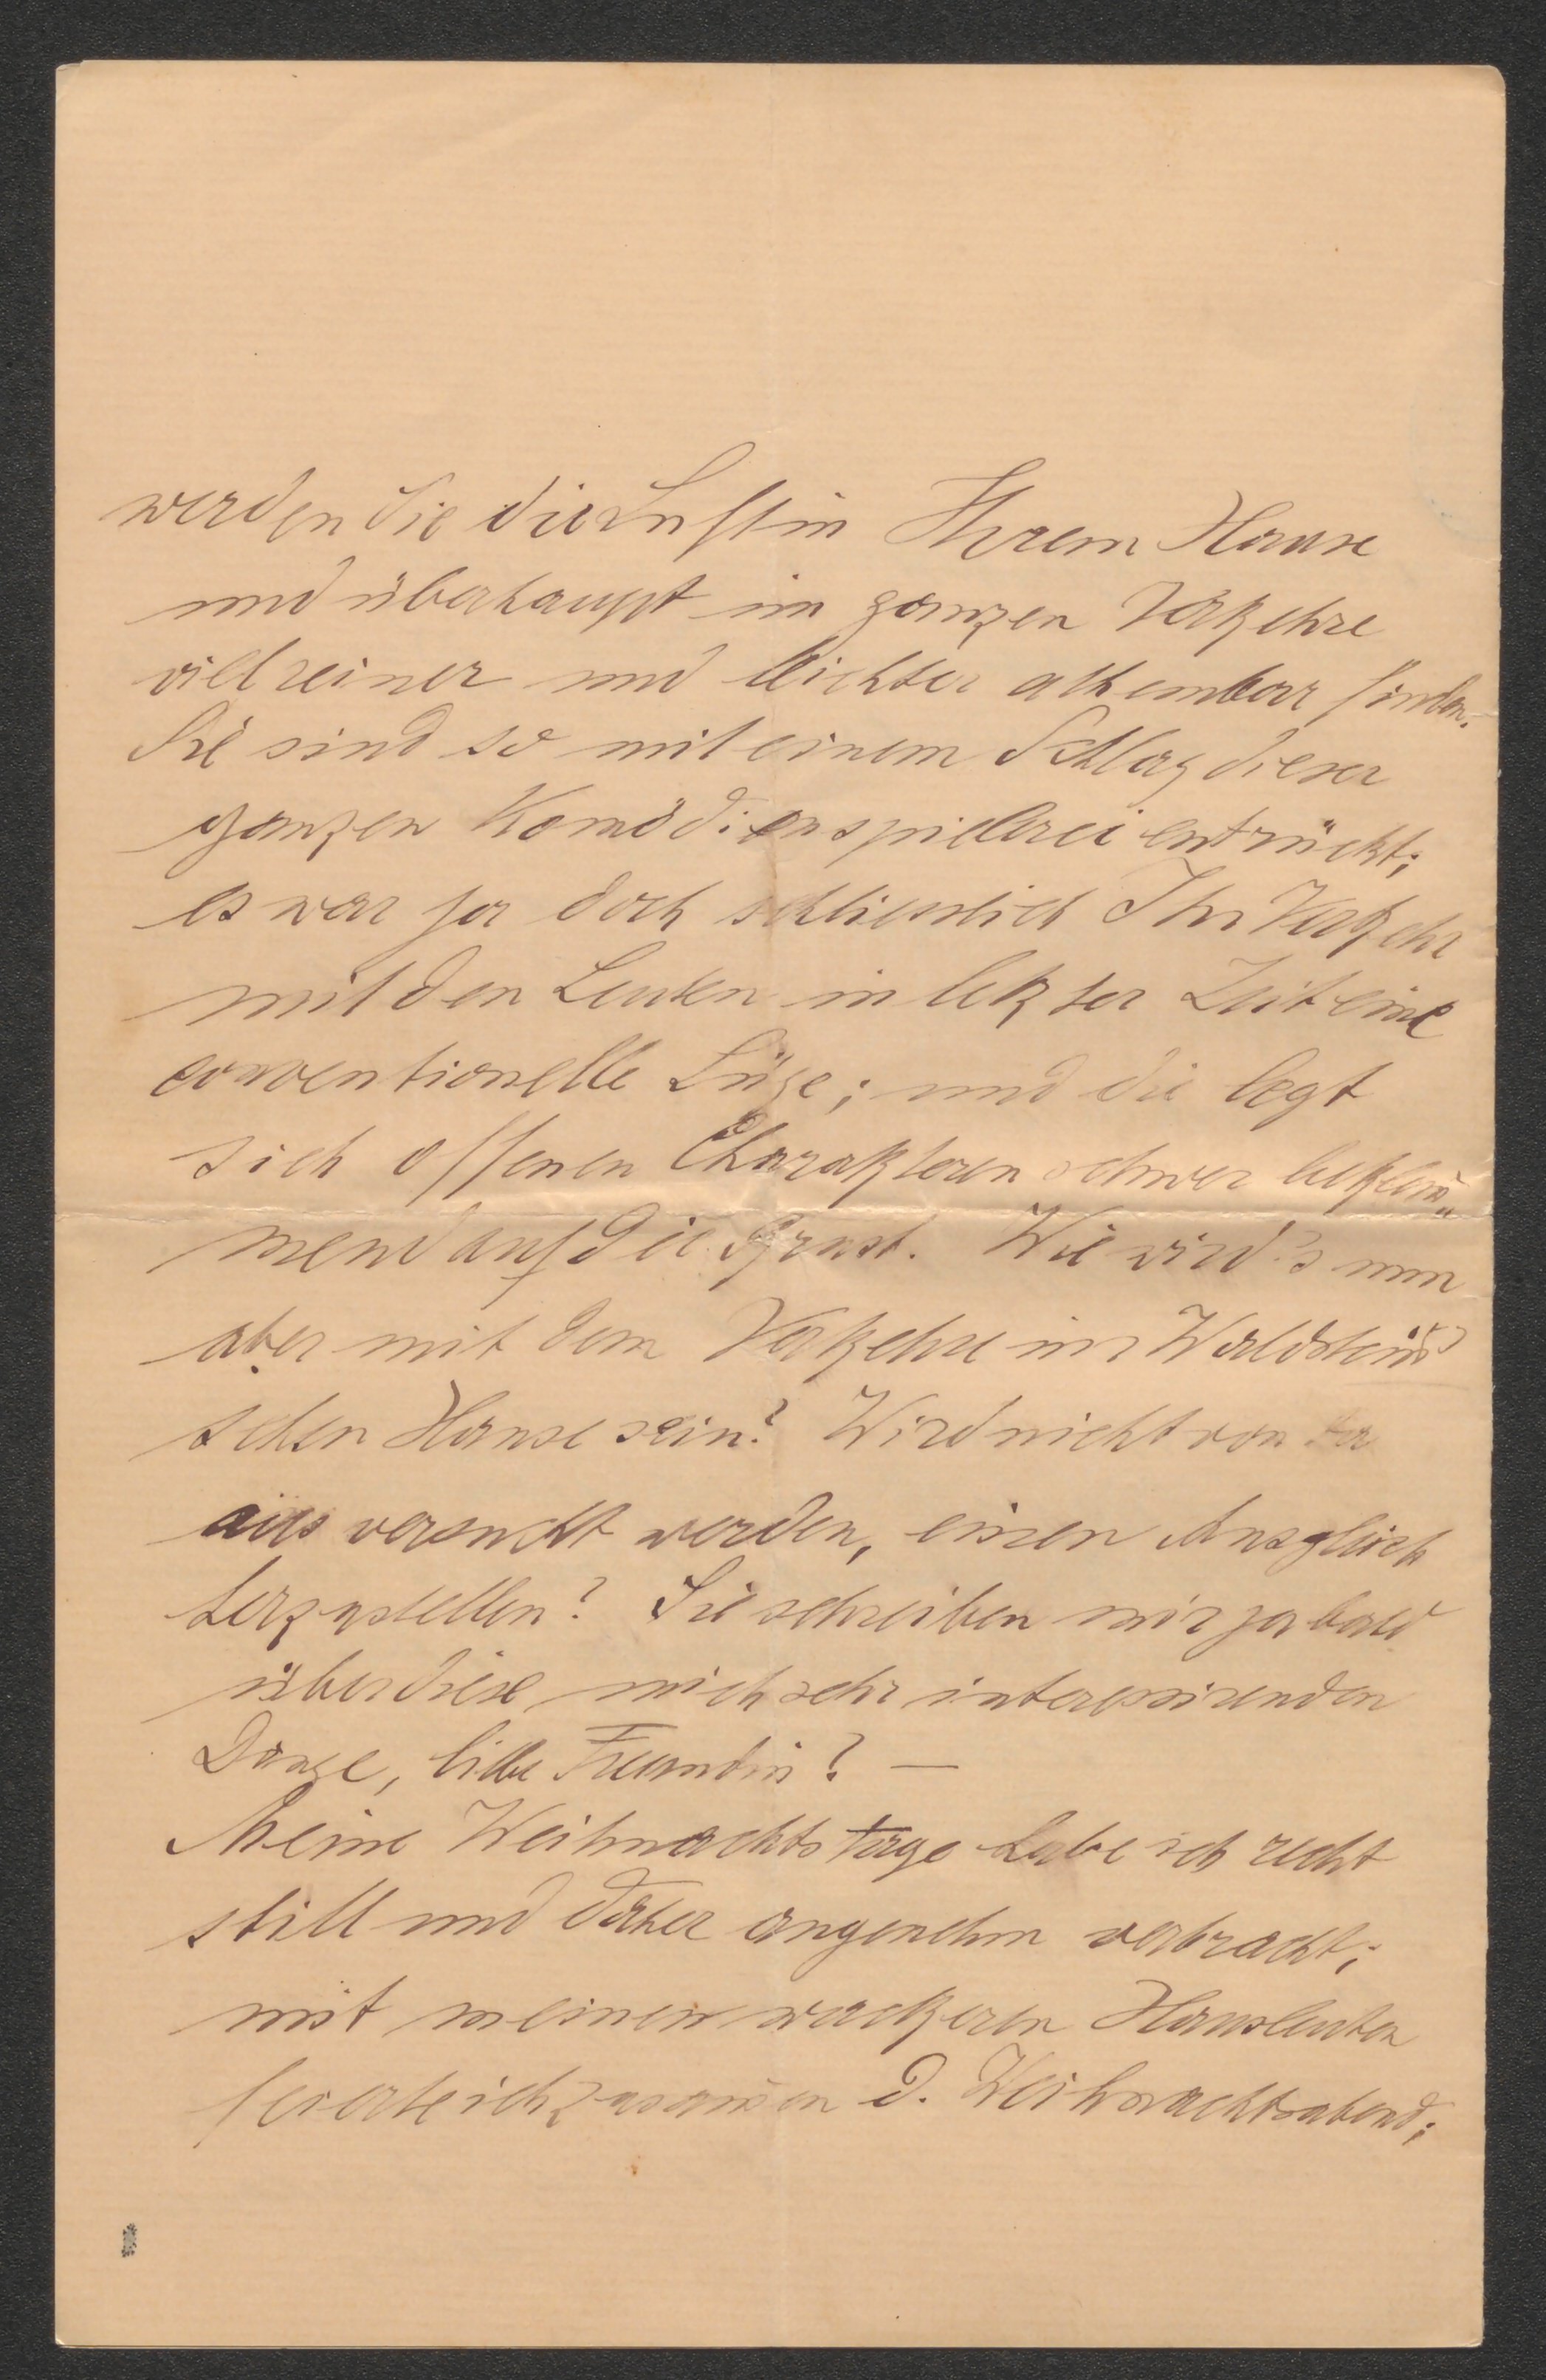 werden Sie die Luft in Ihrem Hause
und überhaupt im ganzen Verkehre
viel reiner und leichter athembar finden.
Sie sind so mit einem Schlag dieser
ganzen Komödienspielerei entrückt;
es war ja doch schliesslich Ihr Verkehr
mit den Leuten in letzter Zeit eine
conventionelle Lüge; und die legt
sich offenen Charakteren schwer beklem̅„
mend auf die Brust. Wie wird's nun
aber mit dem Verkehre im Waldstein'
schen Hause sein? Wird nicht von da
aus versucht werden, einen Ausgleich
herzustellen? Sie schreiben mir ja bald
über diese mich sehr interessirenden
Dinge, liebe Freundin? —
Meine Weihnachtstage habe ich recht
still und daher angenehm verbracht;
mit meinen wackeren Hausleuten
feierte ich zusam̅en d. Weihnachtsabend;